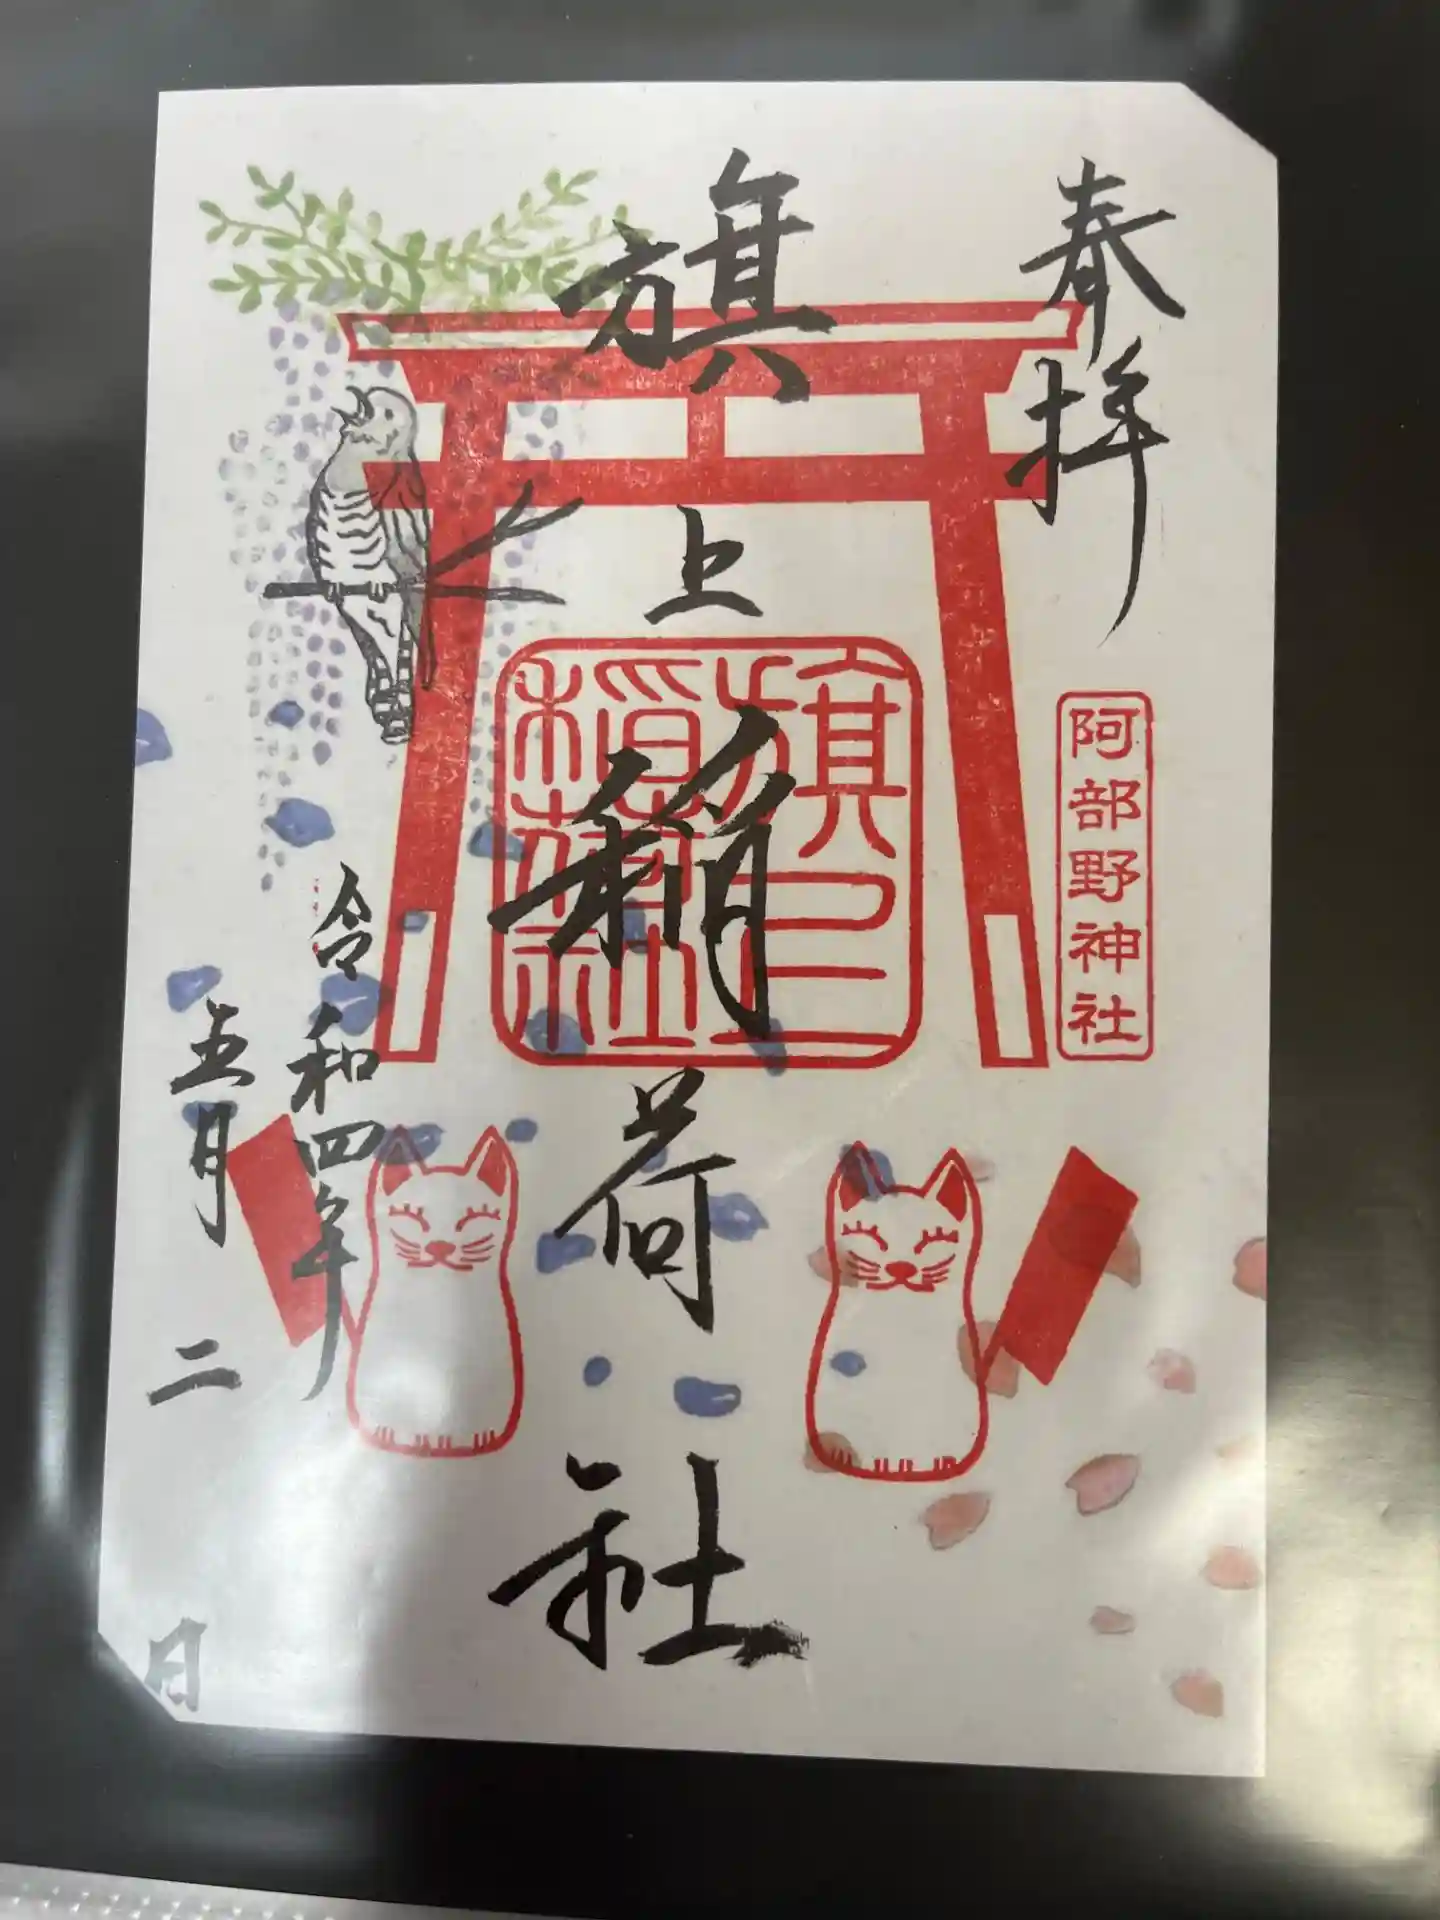 奉拝
阿部野神社
旗上稲荷社
旗上
稲荷社
令和四年
五月二日